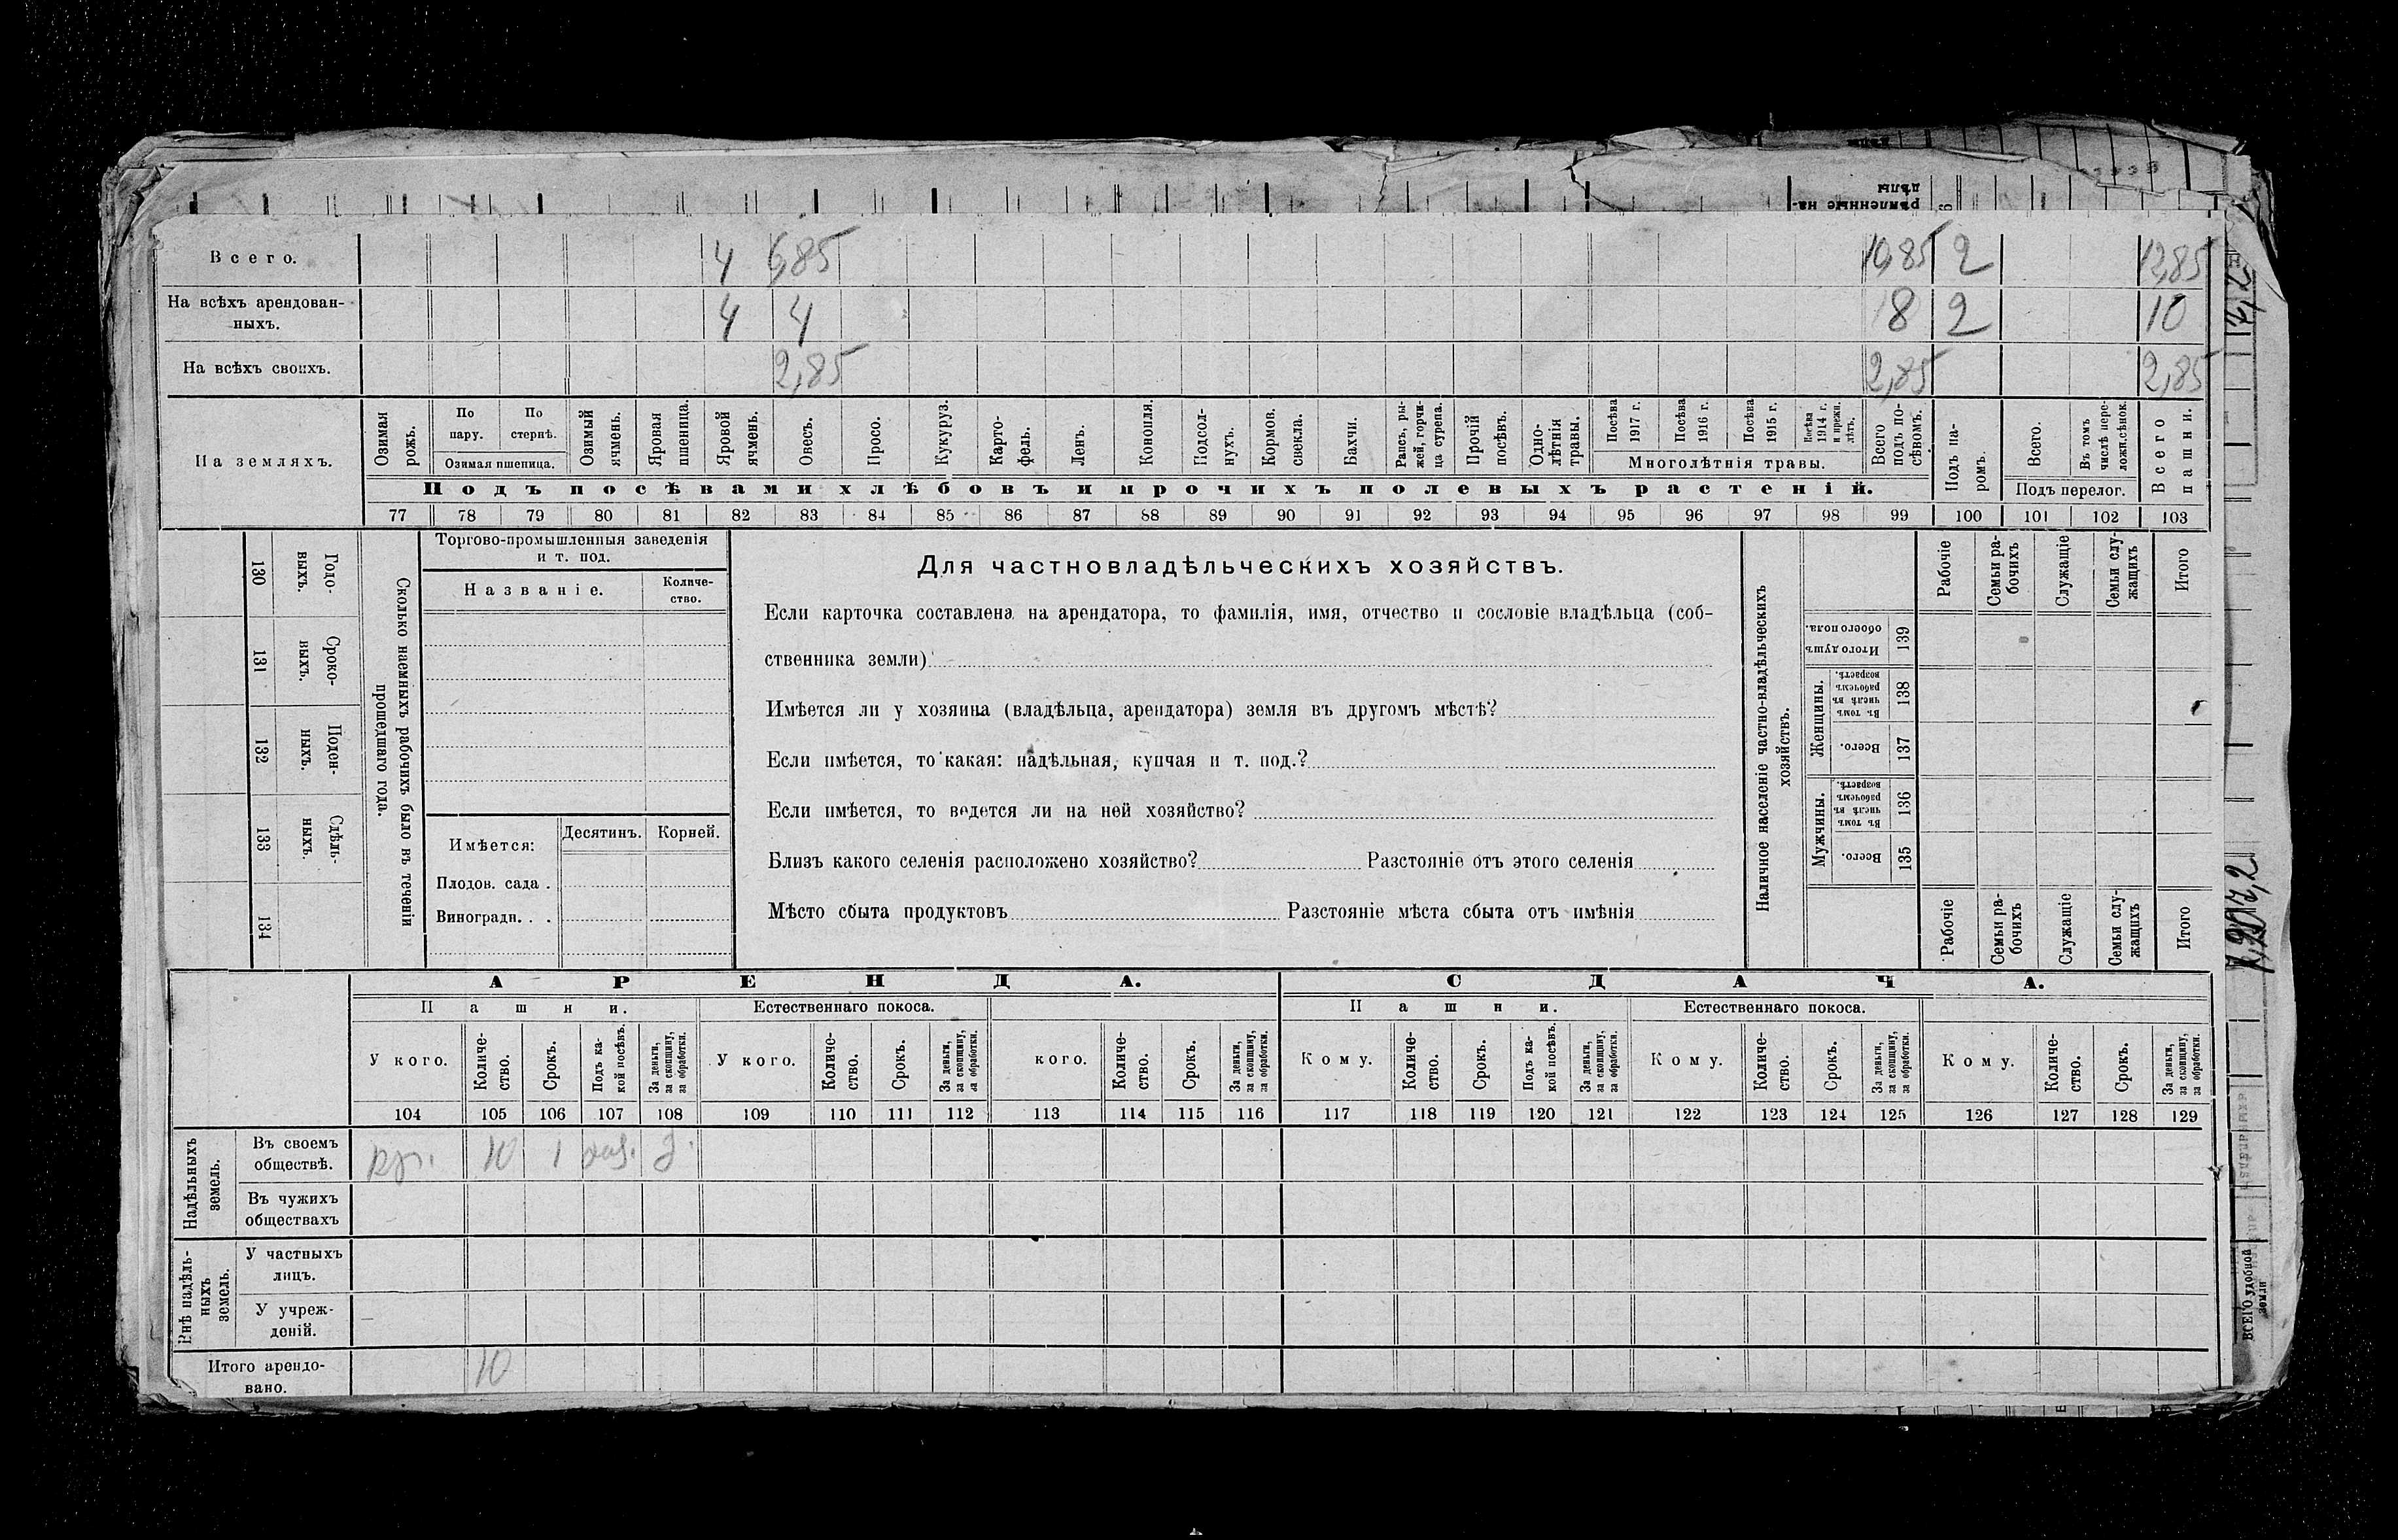 Всего. 4 6,85 10,85 2 12,85
На всѣхъ арендован-
ныхъ. 4 4 8 2 10
На всѣхъ своихъ. 2,85 2,85 2,85
На земляхъ.
Озимая рожь.
По пару.
По стернѣ.
Озимая пшеница.
Озимый ячмень.
Яровая пшеница.
Яровой ячмень.
Овесъ.
Просо.
Кукуруз.
Карто-
фель.
Ленъ.
Конопля.
Подсол-
нухъ.
Кормов. свекла.
Бахчи.
Рапсъ, ры-
жей, горчи-
ца сурепа.
Прочій посѣвъ.
Одно-
лѣтнія травы.
Посѣва 1917 г.
Посѣва 1916 г.
Посѣва 1915 г.
Посѣва 1914 г. и прежн. лѣтъ.
Многолѣтнія травы.
Всего подъ по-
сѣвомъ.
Подъ па-
ромъ.
Всего.
Въ томъ числѣ пере-
лож.сѣнок.
Подъ перелог.
Всего пашни.
Подъ посѣвами хлѣбовъ и прочихъ полевыхъ растеній.
77 78 79 80 81 82 83 84 85 86 87 88 89 90 91 92 93 94 95 96 97 98 99 100 101 102 103
130 Годо-
выхъ.
131 Сроко-
ныхъ.
132 Поден-
ныхъ.
133 Сдѣль-
ныхъ.
134
Сколько наемныхъ рабочихъ было въ теченіи
прошедшаго года.
Торгово-промышленныя заведенія
и т. под.
Названіе.
Количе-
ство.
Имѣется: Десятинъ. Корней.
Плодов. сада .
Виноградн. . .
Для частновладѣльческихъ хозяйствъ.
Если карточка составлена на арендатора, то фамилія, имя, отчество и сословіе владѣльца (соб-
ственника земли)
Имѣется ли у хозяина (владѣльца, арендатора) земля въ другомъ мѣстѣ?
Если имѣется, то какая: надѣльная, купчая и т. под.?
Если имѣется, то ведется ли на ней хозяйство?
Близъ какого селенія расположено хозяйство? Разстояніе отъ этого селенія
Мѣсто сбыта продуктовъ Разстояніе мѣста сбыта отъ имѣнія
Наличное населеніе частно-владѣльческихъ
хозяйствъ.
Рабочіе
Семьи ра-
бочихъ
Служащіе
Семьи слу-
жащихъ
Итого
Итого душъ обоего пола. 139
Женщины.
Въ томъ числѣ въ рабочемъ возрастѣ. 138
Всего. 137
Мужчины.
Въ томъ числѣ въ рабочемъ возрастѣ. 136
Всего. 135
Рабочіе
Семьи ра-
бочихъ
Служащіе
Семьи слу-
жащихъ
Итого
АРЕНДА. СДАЧА.
Пашни. Естественнаго покоса. Пашни. Естественнаго покоса.
У кого.
Количе-
ство.
Срокъ.
Подъ ка-
кой посѣвъ.
За деньги, за скопщину, за обработки.
У кого.
Количе-
ство.
Срокъ.
За деньги, за скопщину, за обработки.
кого.
Количе-
ство.
Срокъ.
За деньги, за скопщину, за обработки.
Кому.
Количе-
ство.
Срокъ.
Подъ ка-
кой посѣвъ.
За деньги, за скопщину, за обработки.
Кому.
Количе-
ство.
Срокъ.
За деньги, за скопщину, за обработки.
Кому.
Количе-
ство.
Срокъ.
За деньги, за скопщину, за обработки.
104 105 106 107 108 109 110 111 112 113 114 115 116 117 118 119 120 121 122 123 124 125 126 127 128 129
Надѣльныхъ земель.
Въ своемъ
обществѣ. 10 1
Въ чужихъ
обществахъ
Внѣ надѣль-
ныхъ земель.
У частныхъ
лицъ.
У учреж-
деній.
Итого арендо-
вано. 10
ВСЕГО удобной земли